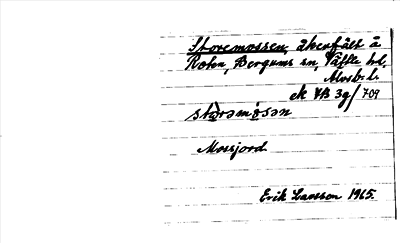 Storemossen, åkerfält å
Rolsa, Bergums sn, Vättle hd,
Älvsb. l.
ek VB 3g/709
stòrəmósən
Mossjord.
Erik Larsson 1965.